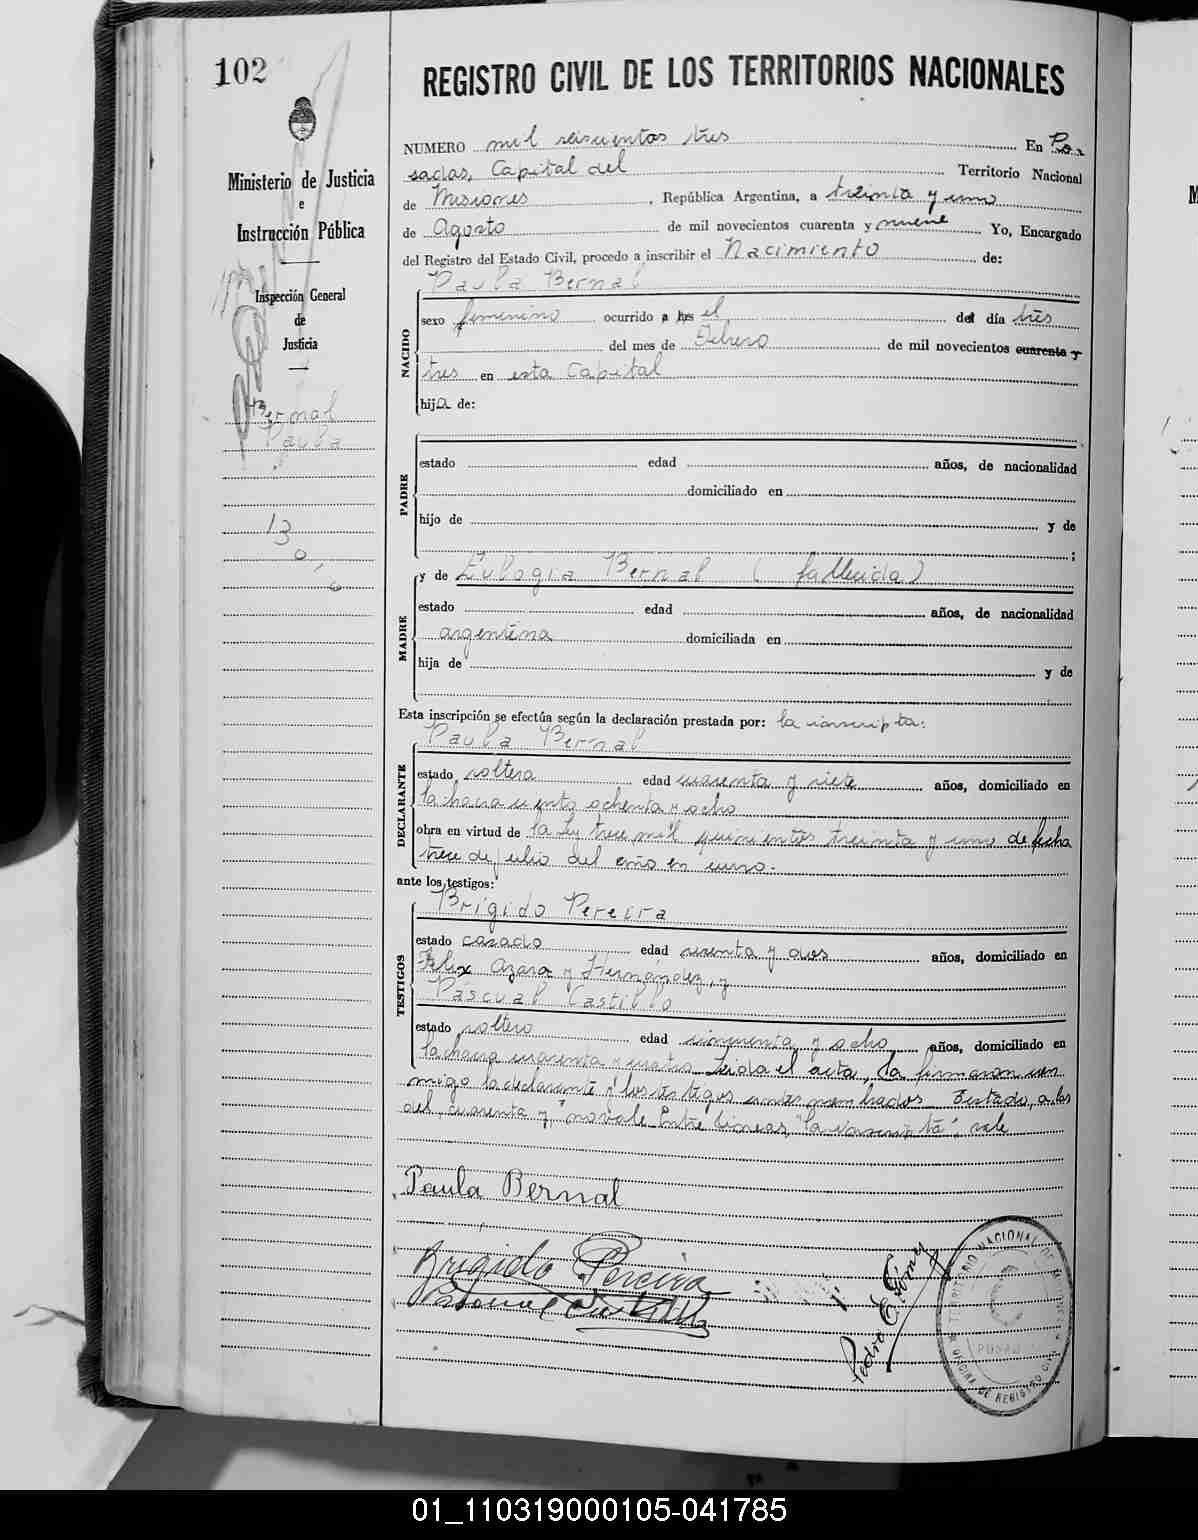 102
Ministerio de Justicia
e
Instrucción Pública
Inspección General
de
Justicia
Bernal
Paula
REGISTRO CIVIL DE LOS TERRITORIOS NACIONALES
NUMERO mil seiscientos tres En Po
sadas, Capital del Territorio Nacional
de Misiones, República Argentina, a treinta y uno
de Agosto de mil novecientos cuarenta y nueve Yo, Encargado
del Registro del Estado Civil, procedo a inscribir el Nacimiento de:
Paula Bernal
NACIDO
sexo femenino ocurrido a las el del día tres
del mes de Febrero de mil novecientos cuarenta y
tres en esta Capital
hija de:
PADRE
estado edad años, de nacionalidad
domiciliado en
hijo de y de
;
MADRE
y de Eulogia Bernal (fallecida)
estado edad años, de nacionalidad
argentina domiciliada en
hija de y de
Esta inscripción se efectúa según la declaración prestada por: la inscripta:
Paula Bernal
DECLARANTE
estado soltera edad cuarenta y siete años, domiciliado en
la chacra ciento ochenta y ocho
obra en virtud de la ley trece mil quinientos treinta y uno de fecha
trece de julio del año en curso.
ante los testigos:
Brígido Pereira
TESTIGOS
estado casado edad y dos años, domiciliado en
Felix Azara y Hernandez, y
Pascual Castillo
estado soltero edad cincuenta y ocho años, domiciliado en
la chacra cuarenta y cuatro Leida el acta, la firmaron con
migo la declarante y los testigos antes nombrados Testado, a las
del, cuarenta y, "no vale Entre lineas, "la inscripta", vale
Paula Bernal
Brigido Pereira
Pascual Castillo
Pedro E. Gomez
TERRITORIO NACIONAL DE MISIONES
OFICINA DE REGISTRO CIVIL
01_110319000105-041785